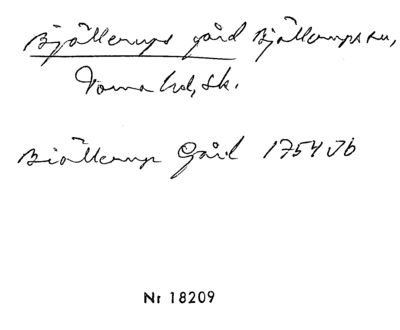 Bjällerups gård Bjällerups sn,
Torna hd, Sk.
Biällerup Gård 1754 Jb
Nr 18209